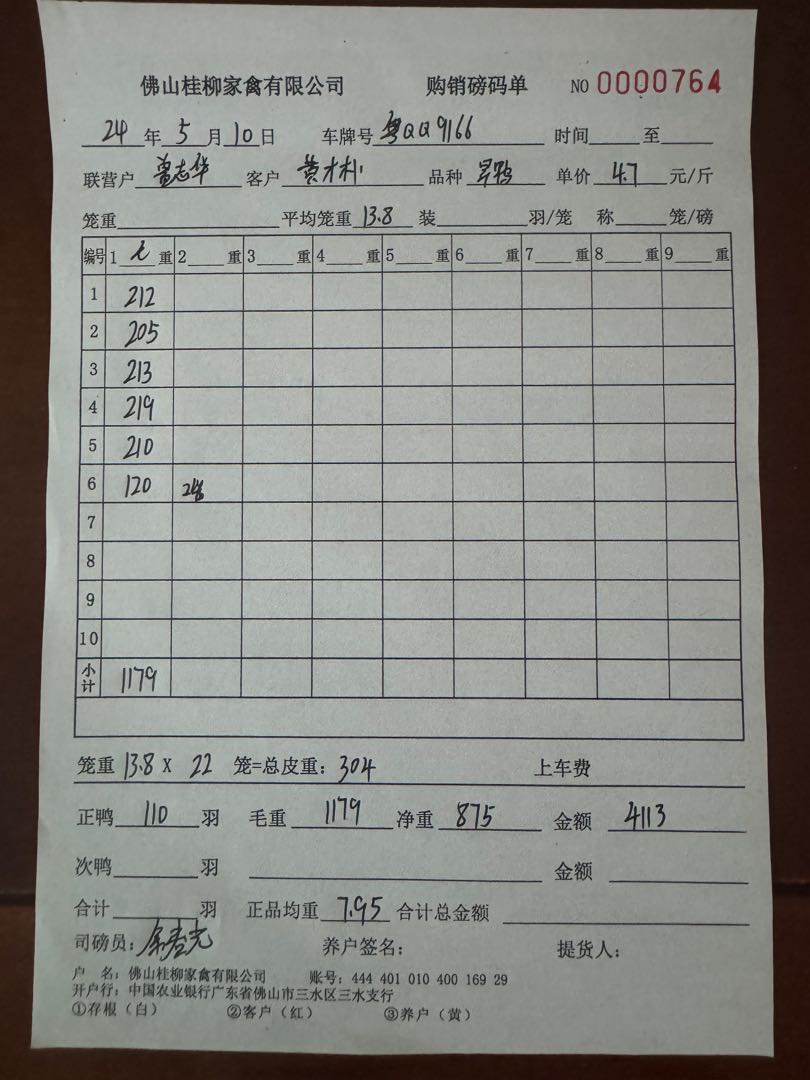 佛山桂柳家禽有限公司 购销磅码单 NO 0000764
24 年 5 月 10 日 车牌号 粤QQ9166 时间 至
联营户 志华 客户 黄才 品种 旱鸭 单价 4.7 元/斤
笼重 平均笼重 13.8 装 羽/笼 称 笼/磅
编号 1 重 2 重 3 重 4 重 5 重 6 重 7 重 8 重 9 重
1 212
2 205
3 213
4 219
5 210
6 120
7
8
9
10
小计 1179
笼重 13.8 X 22 笼=总皮重: 304 上车费
正鸭 110 羽 毛重 1179 净重 875 金额 4113
次鸭 羽 金额
合计 羽 正品均重 7.95 合计总金额
司磅员: 养户签名: 提货人:
户 名: 佛山桂柳家禽有限公司 账号: 444 401 010 400 169 29
开户行: 中国农业银行广东省佛山市三水区三水支行
①存根(白) ②客户(红) ③养户(黄)